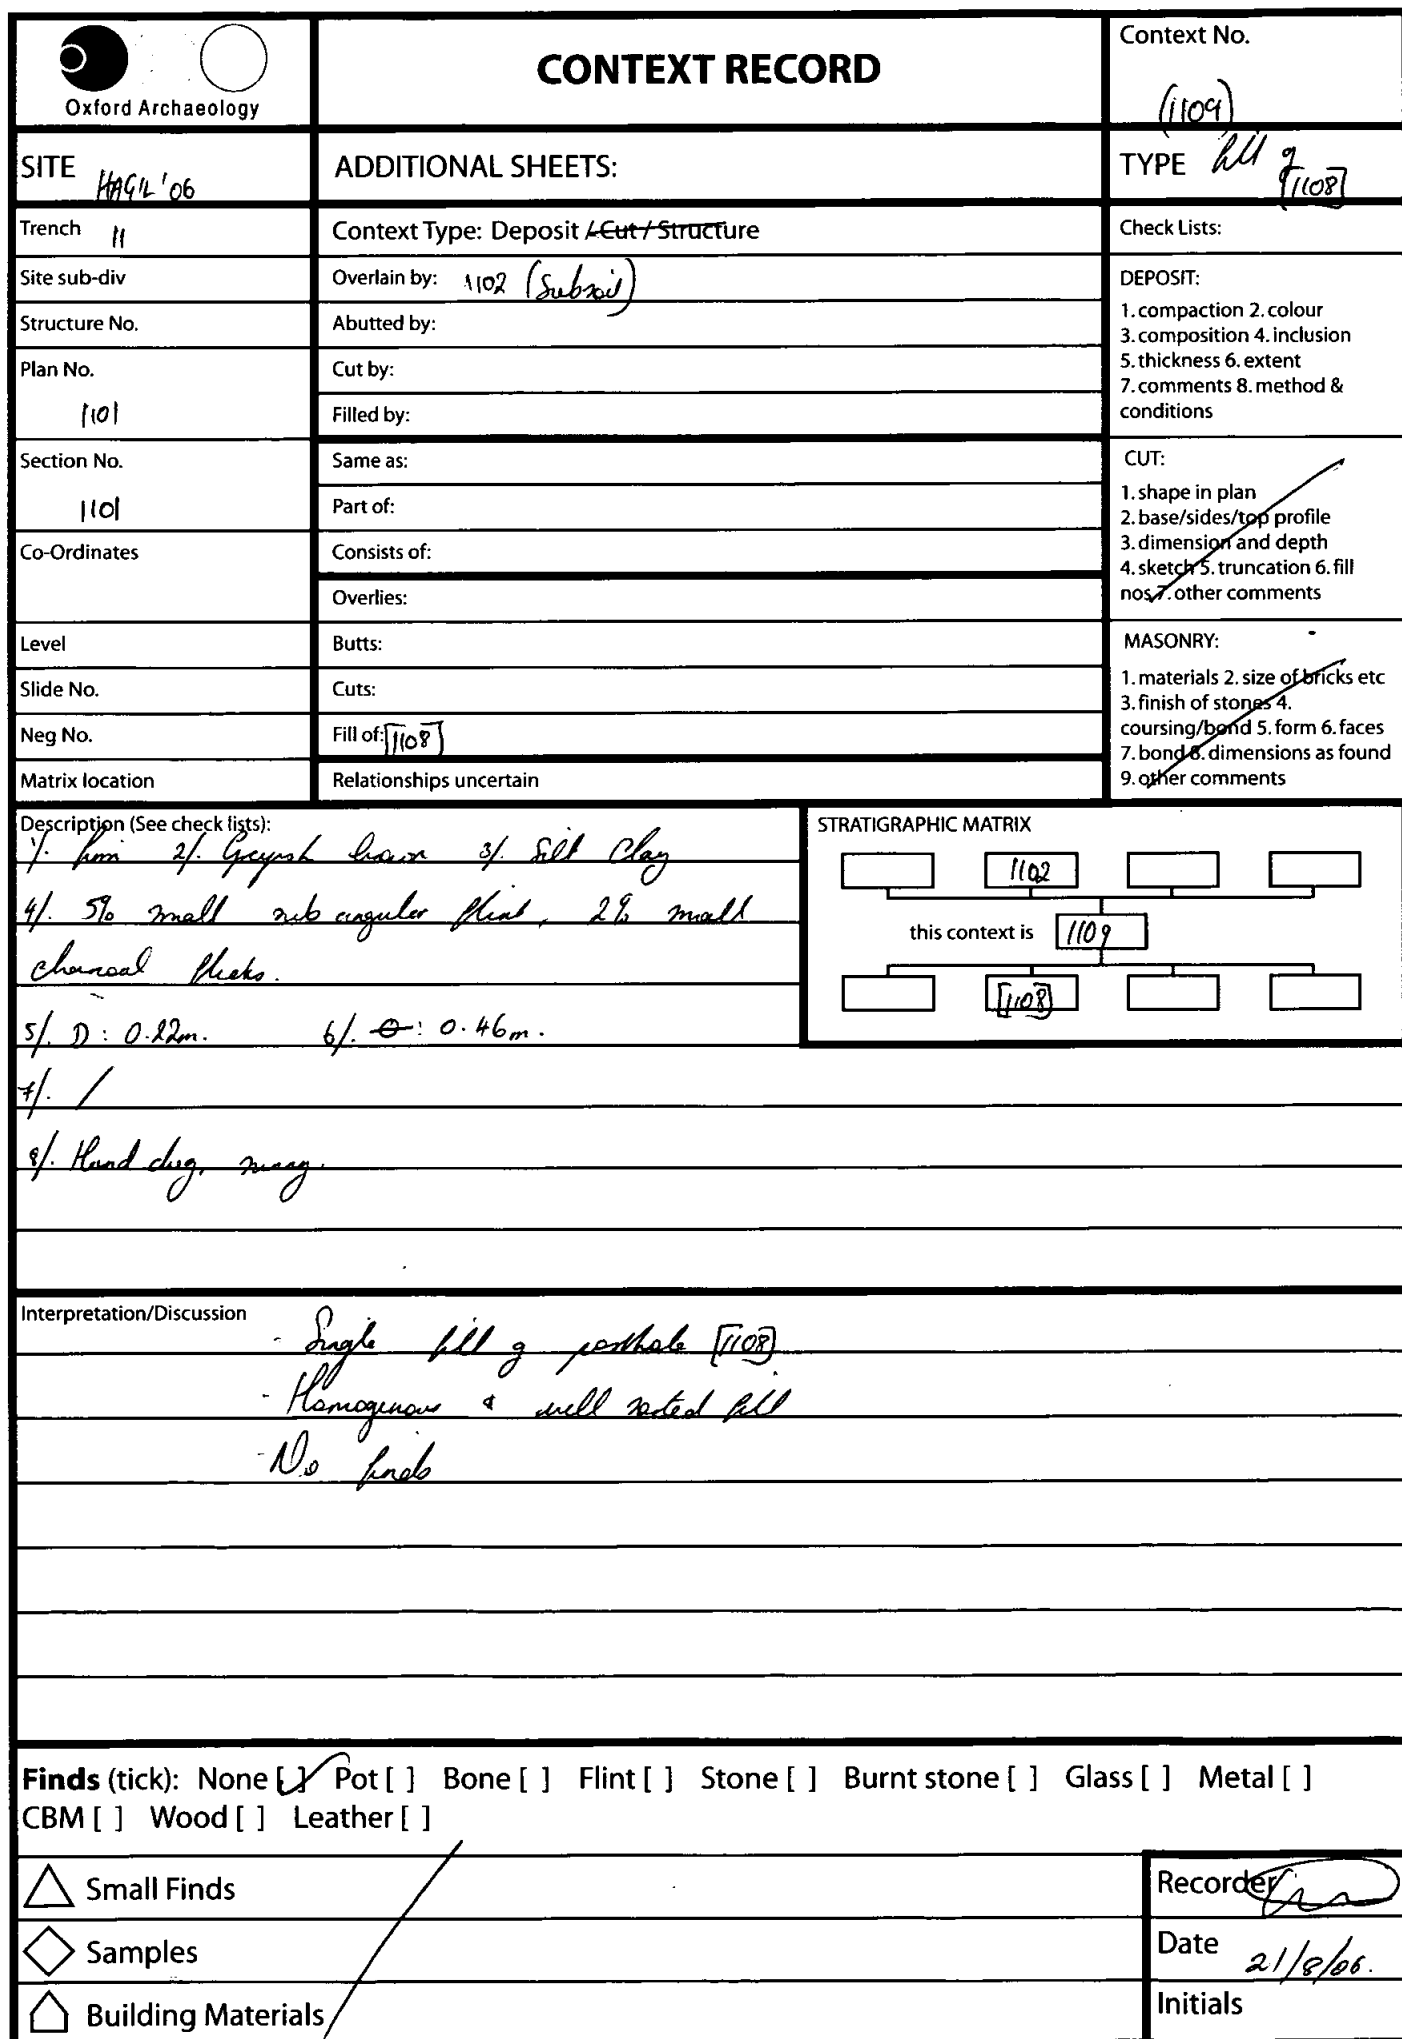 Oxford Archaeology
CONTEXT RECORD
Context No.
(1109)
SITE HAGIL '06
ADDITIONAL SHEETS:
TYPE fill of [1108]
Trench 11
Context Type: Deposit / Cut / Structure
Check Lists:
Site sub-div
Overlain by: 1102 (Subsoil)
Structure No.
Abutted by:
Plan No.
1101
Cut by:
Filled by:
Section No.
1101
Same as:
Part of:
Co-Ordinates
Consists of:
Overlies:
Level
Butts:
Slide No.
Cuts:
Neg No.
Fill of: [1108]
Matrix location
Relationships uncertain
DEPOSIT:
1. compaction 2. colour
3. composition 4. inclusion
5. thickness 6. extent
7. comments 8. method &
conditions
CUT:
1. shape in plan
2. base/sides/top profile
3. dimension and depth
4. sketch 5. truncation 6. fill
nos 7. other comments
MASONRY:
1. materials 2. size of bricks etc
3. finish of stones 4.
coursing/bond 5. form 6. faces
7. bond 8. dimensions as found
9. other comments
Description (See check lists):
1/. firm 2/. Greyish brown 3/. Silt Clay
4/. 5% small sub angular flint, 2% small
charcoal flecks.
5/. D: 0.22m. 6/. Ø: 0.46m.
7/. /
8/. Hand dug, sunny.
STRATIGRAPHIC MATRIX
1102
this context is 1109
[1108]
Interpretation/Discussion
- Single fill of posthole [1108]
- Homogenous & well sorted fill
- No finds
Finds (tick): None [✓] Pot [ ] Bone [ ] Flint [ ] Stone [ ] Burnt stone [ ] Glass [ ] Metal [ ]
CBM [ ] Wood [ ] Leather [ ]
Small Finds
Samples
Building Materials
Recorder
Date 21/8/06.
Initials